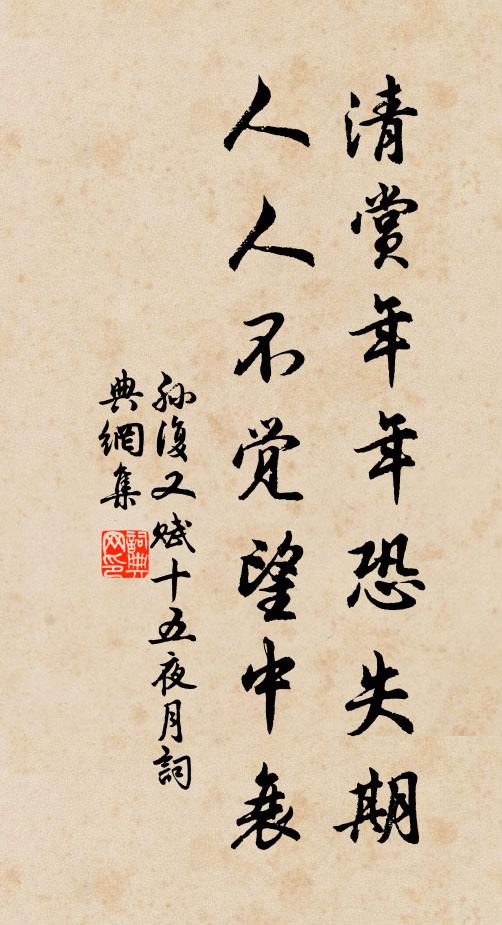 清赏年年恐失期
人人不觉望中衰
孙復又赋十五夜月詞
典網集
詞典
网印